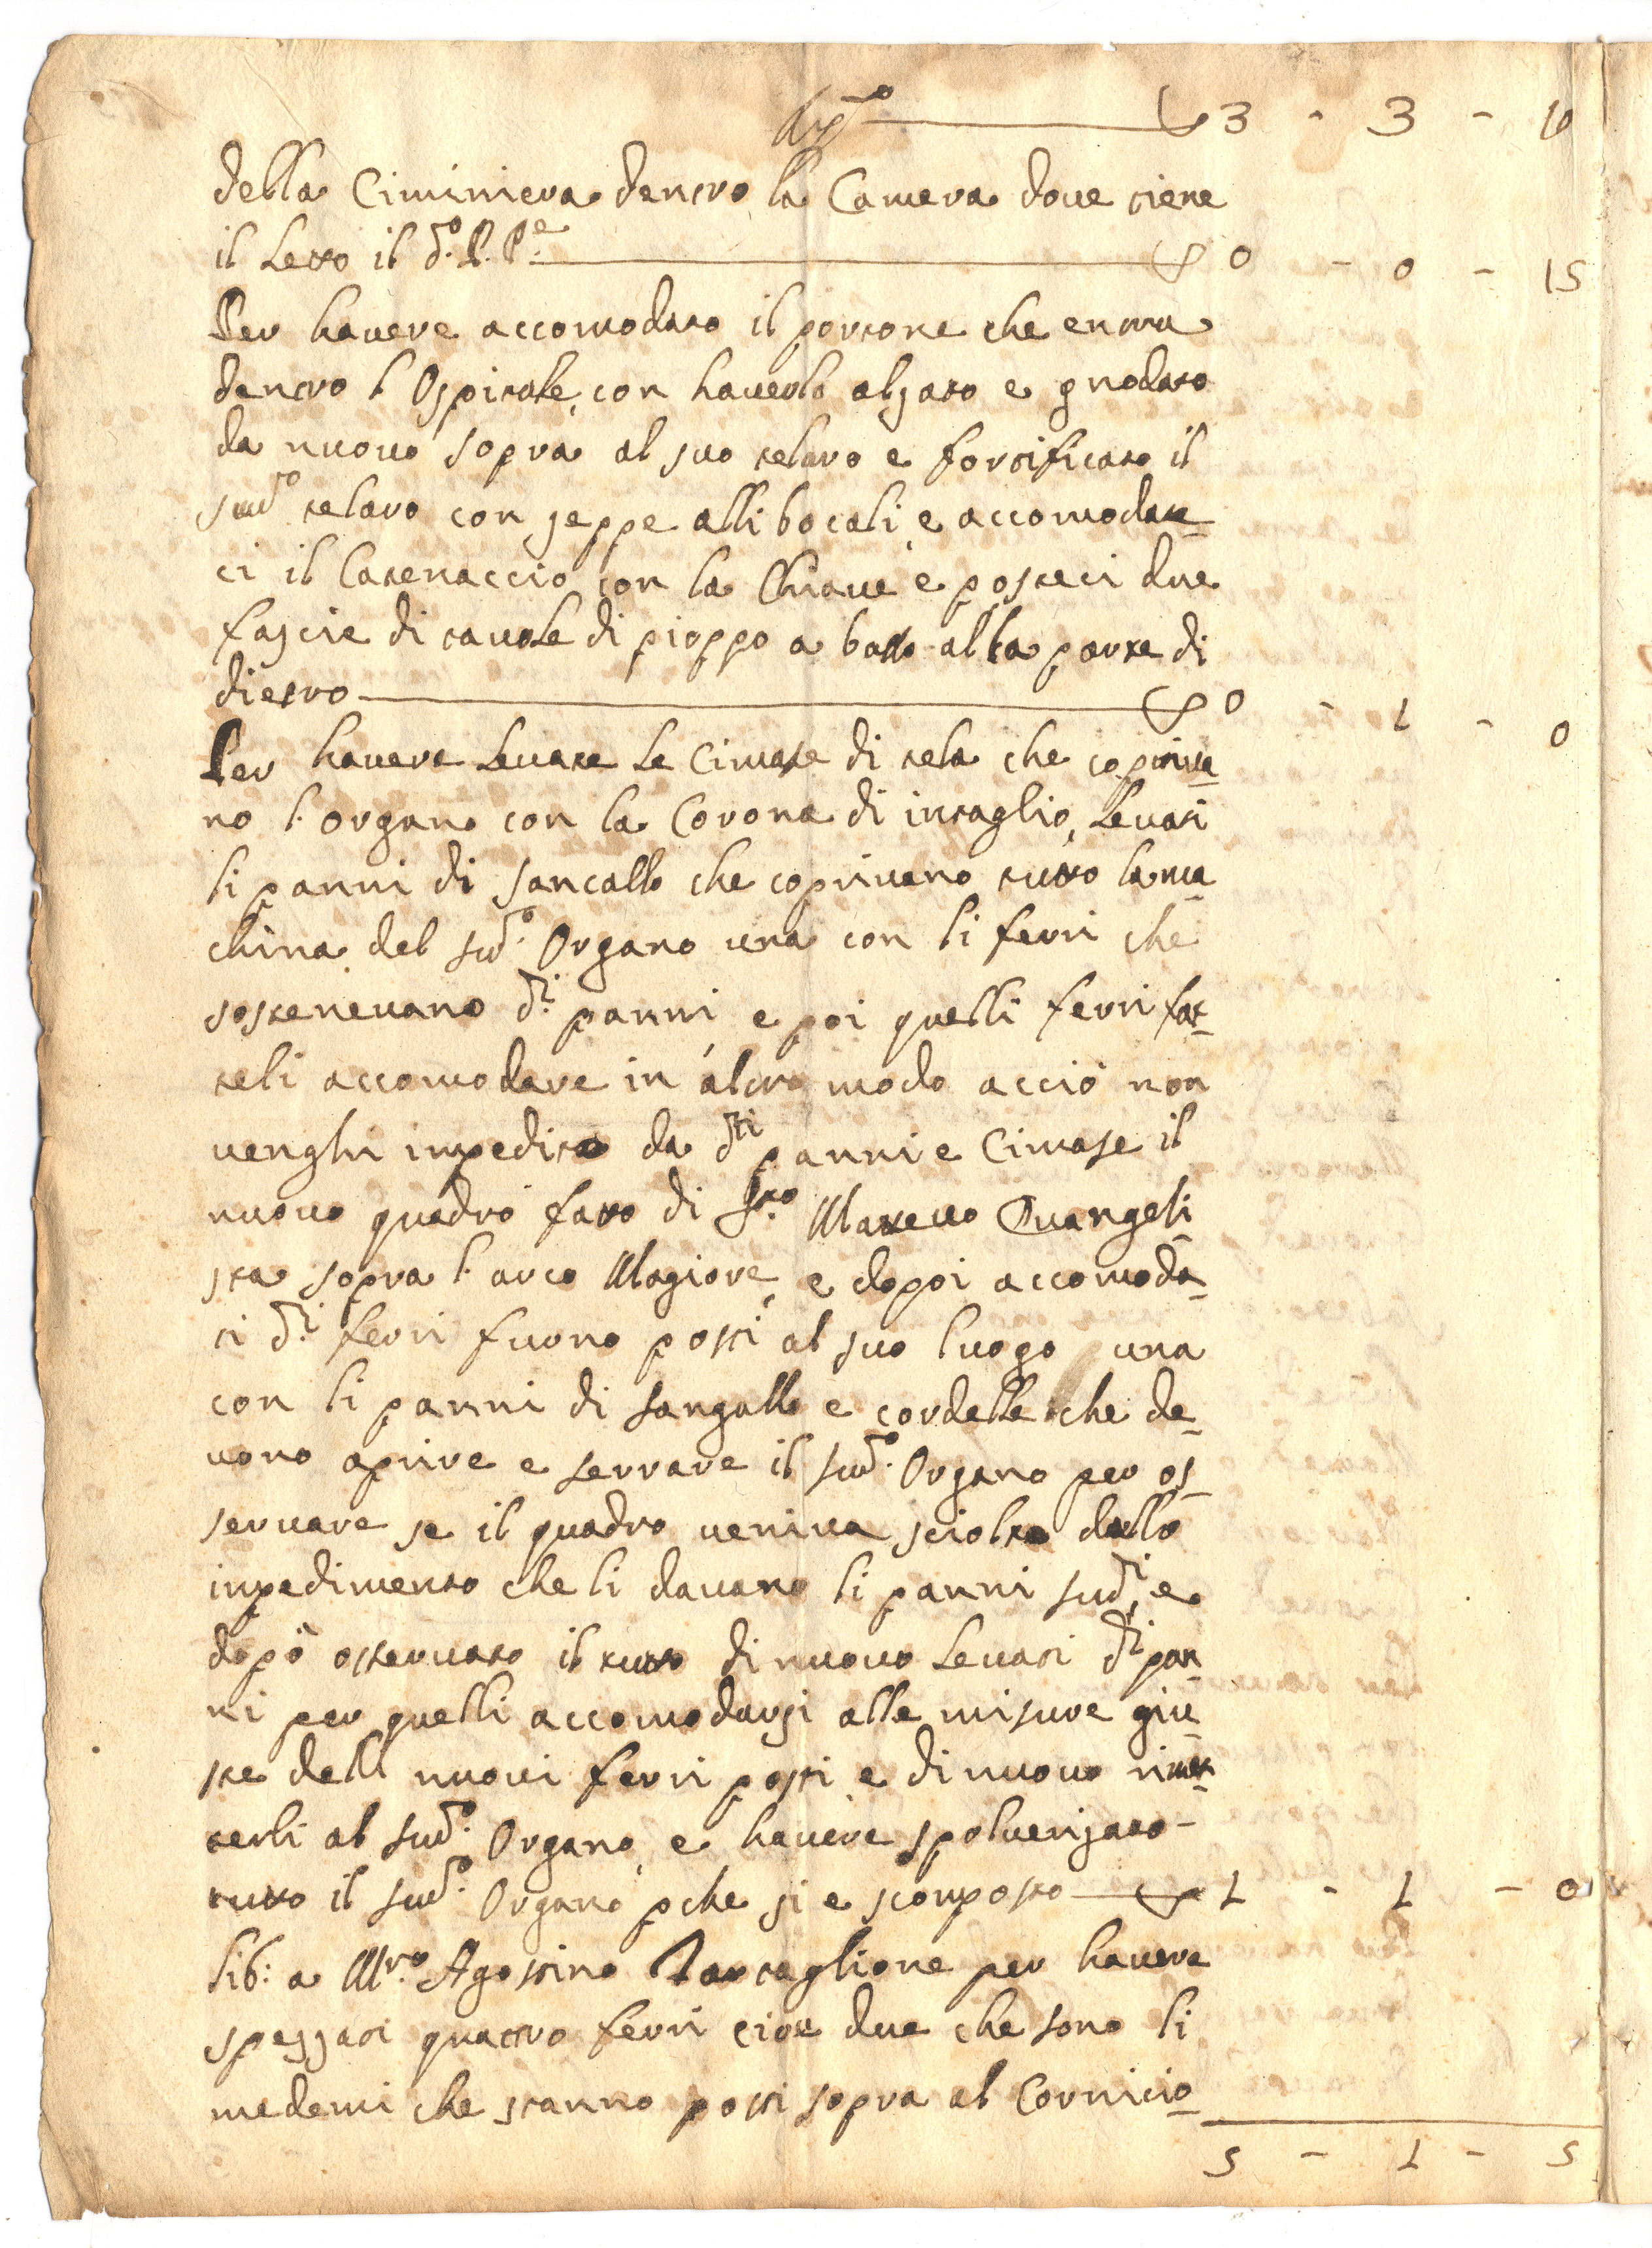 3 - 3 - 10
della Ciminiera dentro la Camera doue tiene
il Letto il d.o P. P.e 0 - 0 - 15
Per hauere accomodato il portone che entra
dentro l'Ospitale, con hauerlo alzato e gnodato
da nuouo sopra al suo telaro e fortificato il
sud.o telaro con zeppe alli bocali, e accomodate
ci il Catenaccio con la Chiaue e posteci due
fascie di tauole di pioppo a basso alla parte di
dietro 0 - 1 - 0
Per hauere Leuate Le Cimase di tela che copriua
no l'organo con la Corona di intaglio, Leuati
li panni di sancallo che copriuano tutto la ma
china del sud.o Organo una con li ferri che
sosteneuano d.i panni, e poi quelli ferri fat
teli accomodare in altro modo acciò non
venghi impedito da d.ti panni e Cimase il
nuouo quadro fatto di S.to Matteuo Euangeli
sta sopra l'arco Magiore, e dopoi accomoda
ti d.i ferri furno posti al suo luogo una
con li panni di sangallo e cordelle che de
uono aprire e serrare il sud.o Organo per os
seruare se il quadro ueniua sciolto dallo
inpedimento che li dauano li panni sud.i, e
dopò osseruato il tutto di nuouo Leuati d.i pan
ni per quelli accomodarsi alle misure giu
ste dell nuoui ferri posti e di nuouo rimet
terli al sud.o Organo, e hauere spoluerizato
tutto il sud.o Organo pche si e scomposto 1 - 1 - 0
Lib: a M.ro Agostino Tartaglione per hauere
spezzati quattro ferri cioe due che sono li
medemi che stanno posti sopra al Cornicio
5 - 1 - 5